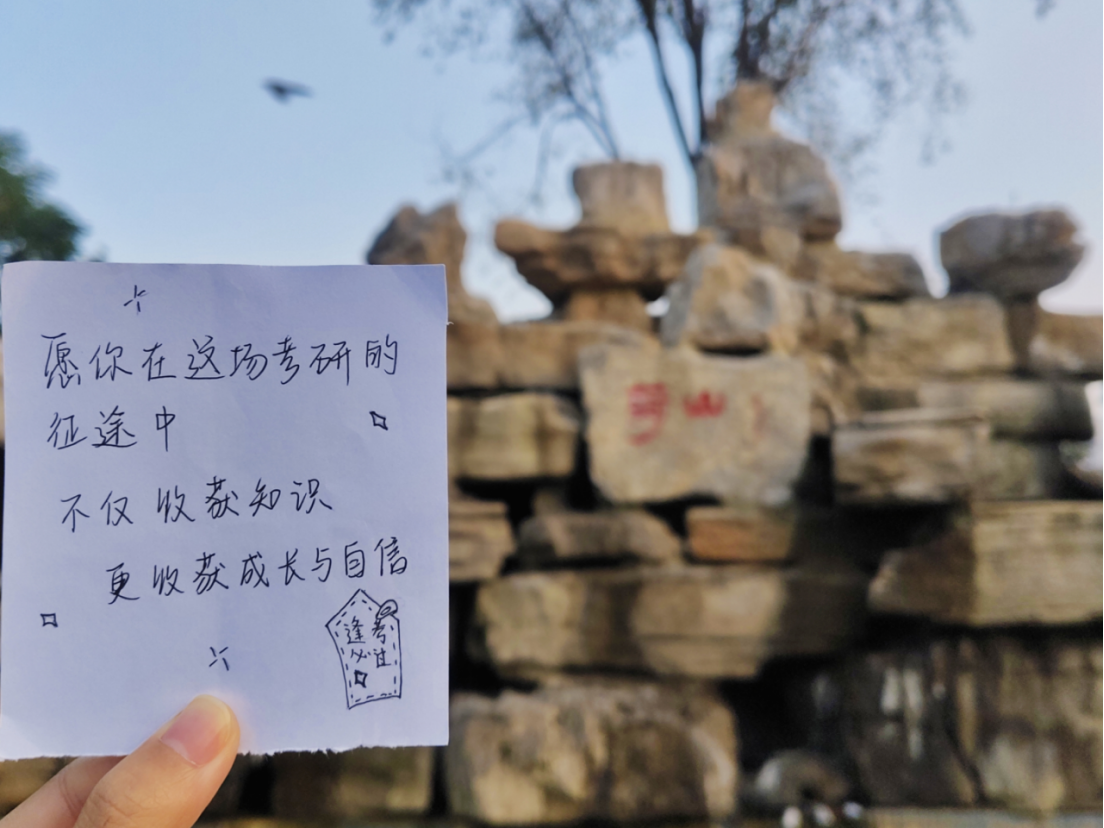 愿你在这场考研的
征途中
不仅收获知识
更收获成长与自信
逢考
必过